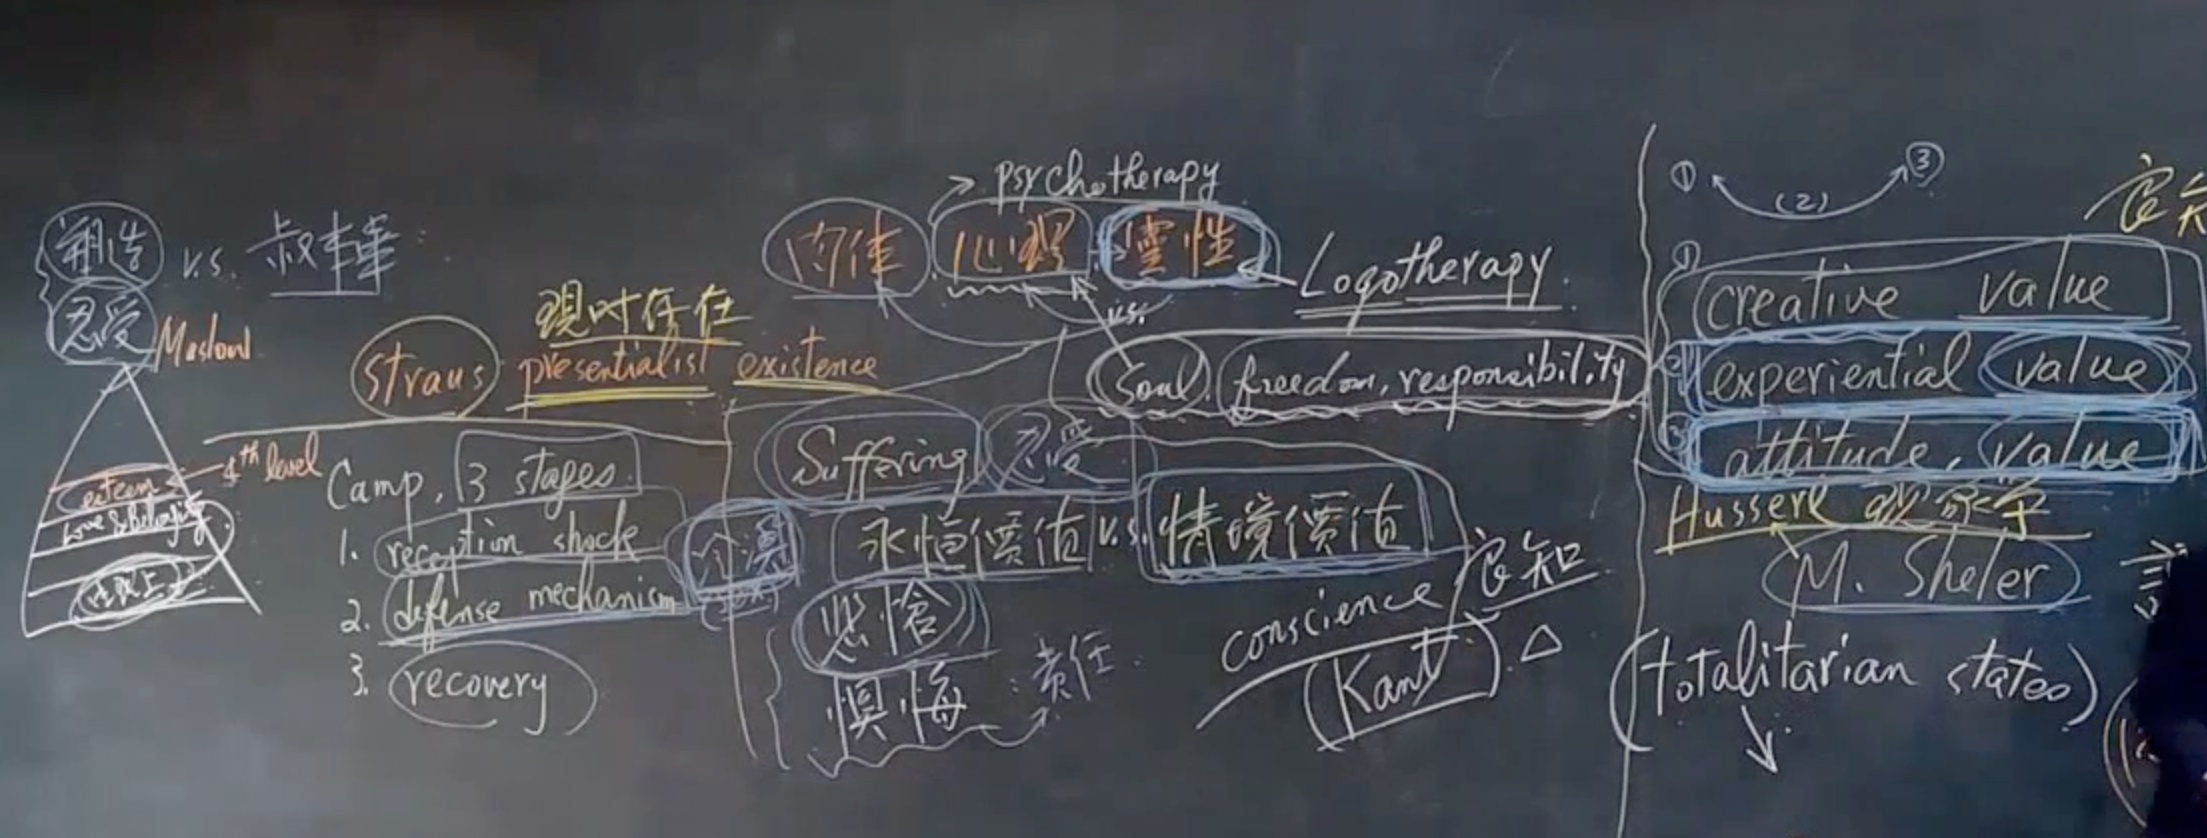 塑造 v.s. 叔本華
忍受
Maslow
esteem
4th level
Love & Belonging
現时存在
straus presentialist existence
Camp, 3 stages.
1. reception shock
2. defense mechanism
3. recovery
→ psychotherapy
肉体 心理 靈性
v.s.
Logotherapy
Soul, freedom, responsibility
Suffering 忍受
永恒價值 v.s. 情境價值
責任
conscience 良知
(Kant) △
① (2) ③
① creative value
② experiential value
③ attitude, value
良知
Husserl 现象学
M. Sheler
(totalitarian states)